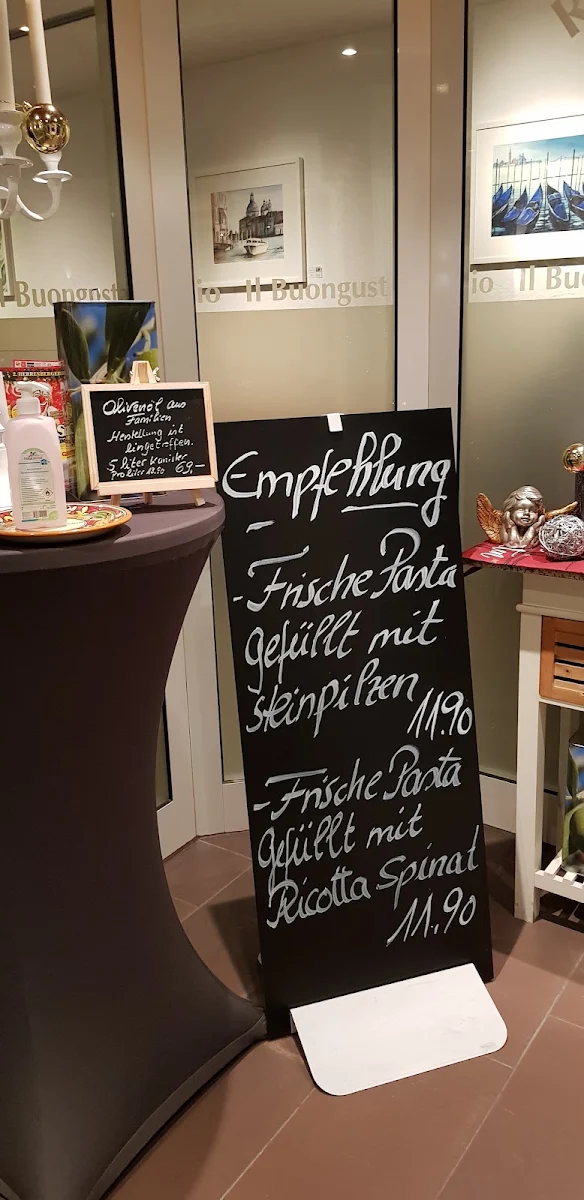 Buongusta
io Il Buongust
io Il Buo
Olivenöl aus
Familien
Herstellung ist
Eingetroffen.
5 liter Kanister
69,-
Empfehlung
- Frische Pasta
Gefüllt mit
Steinpilzen
11.90
- Frische Pasta
Gefüllt mit
Ricotta Spinat
11.90